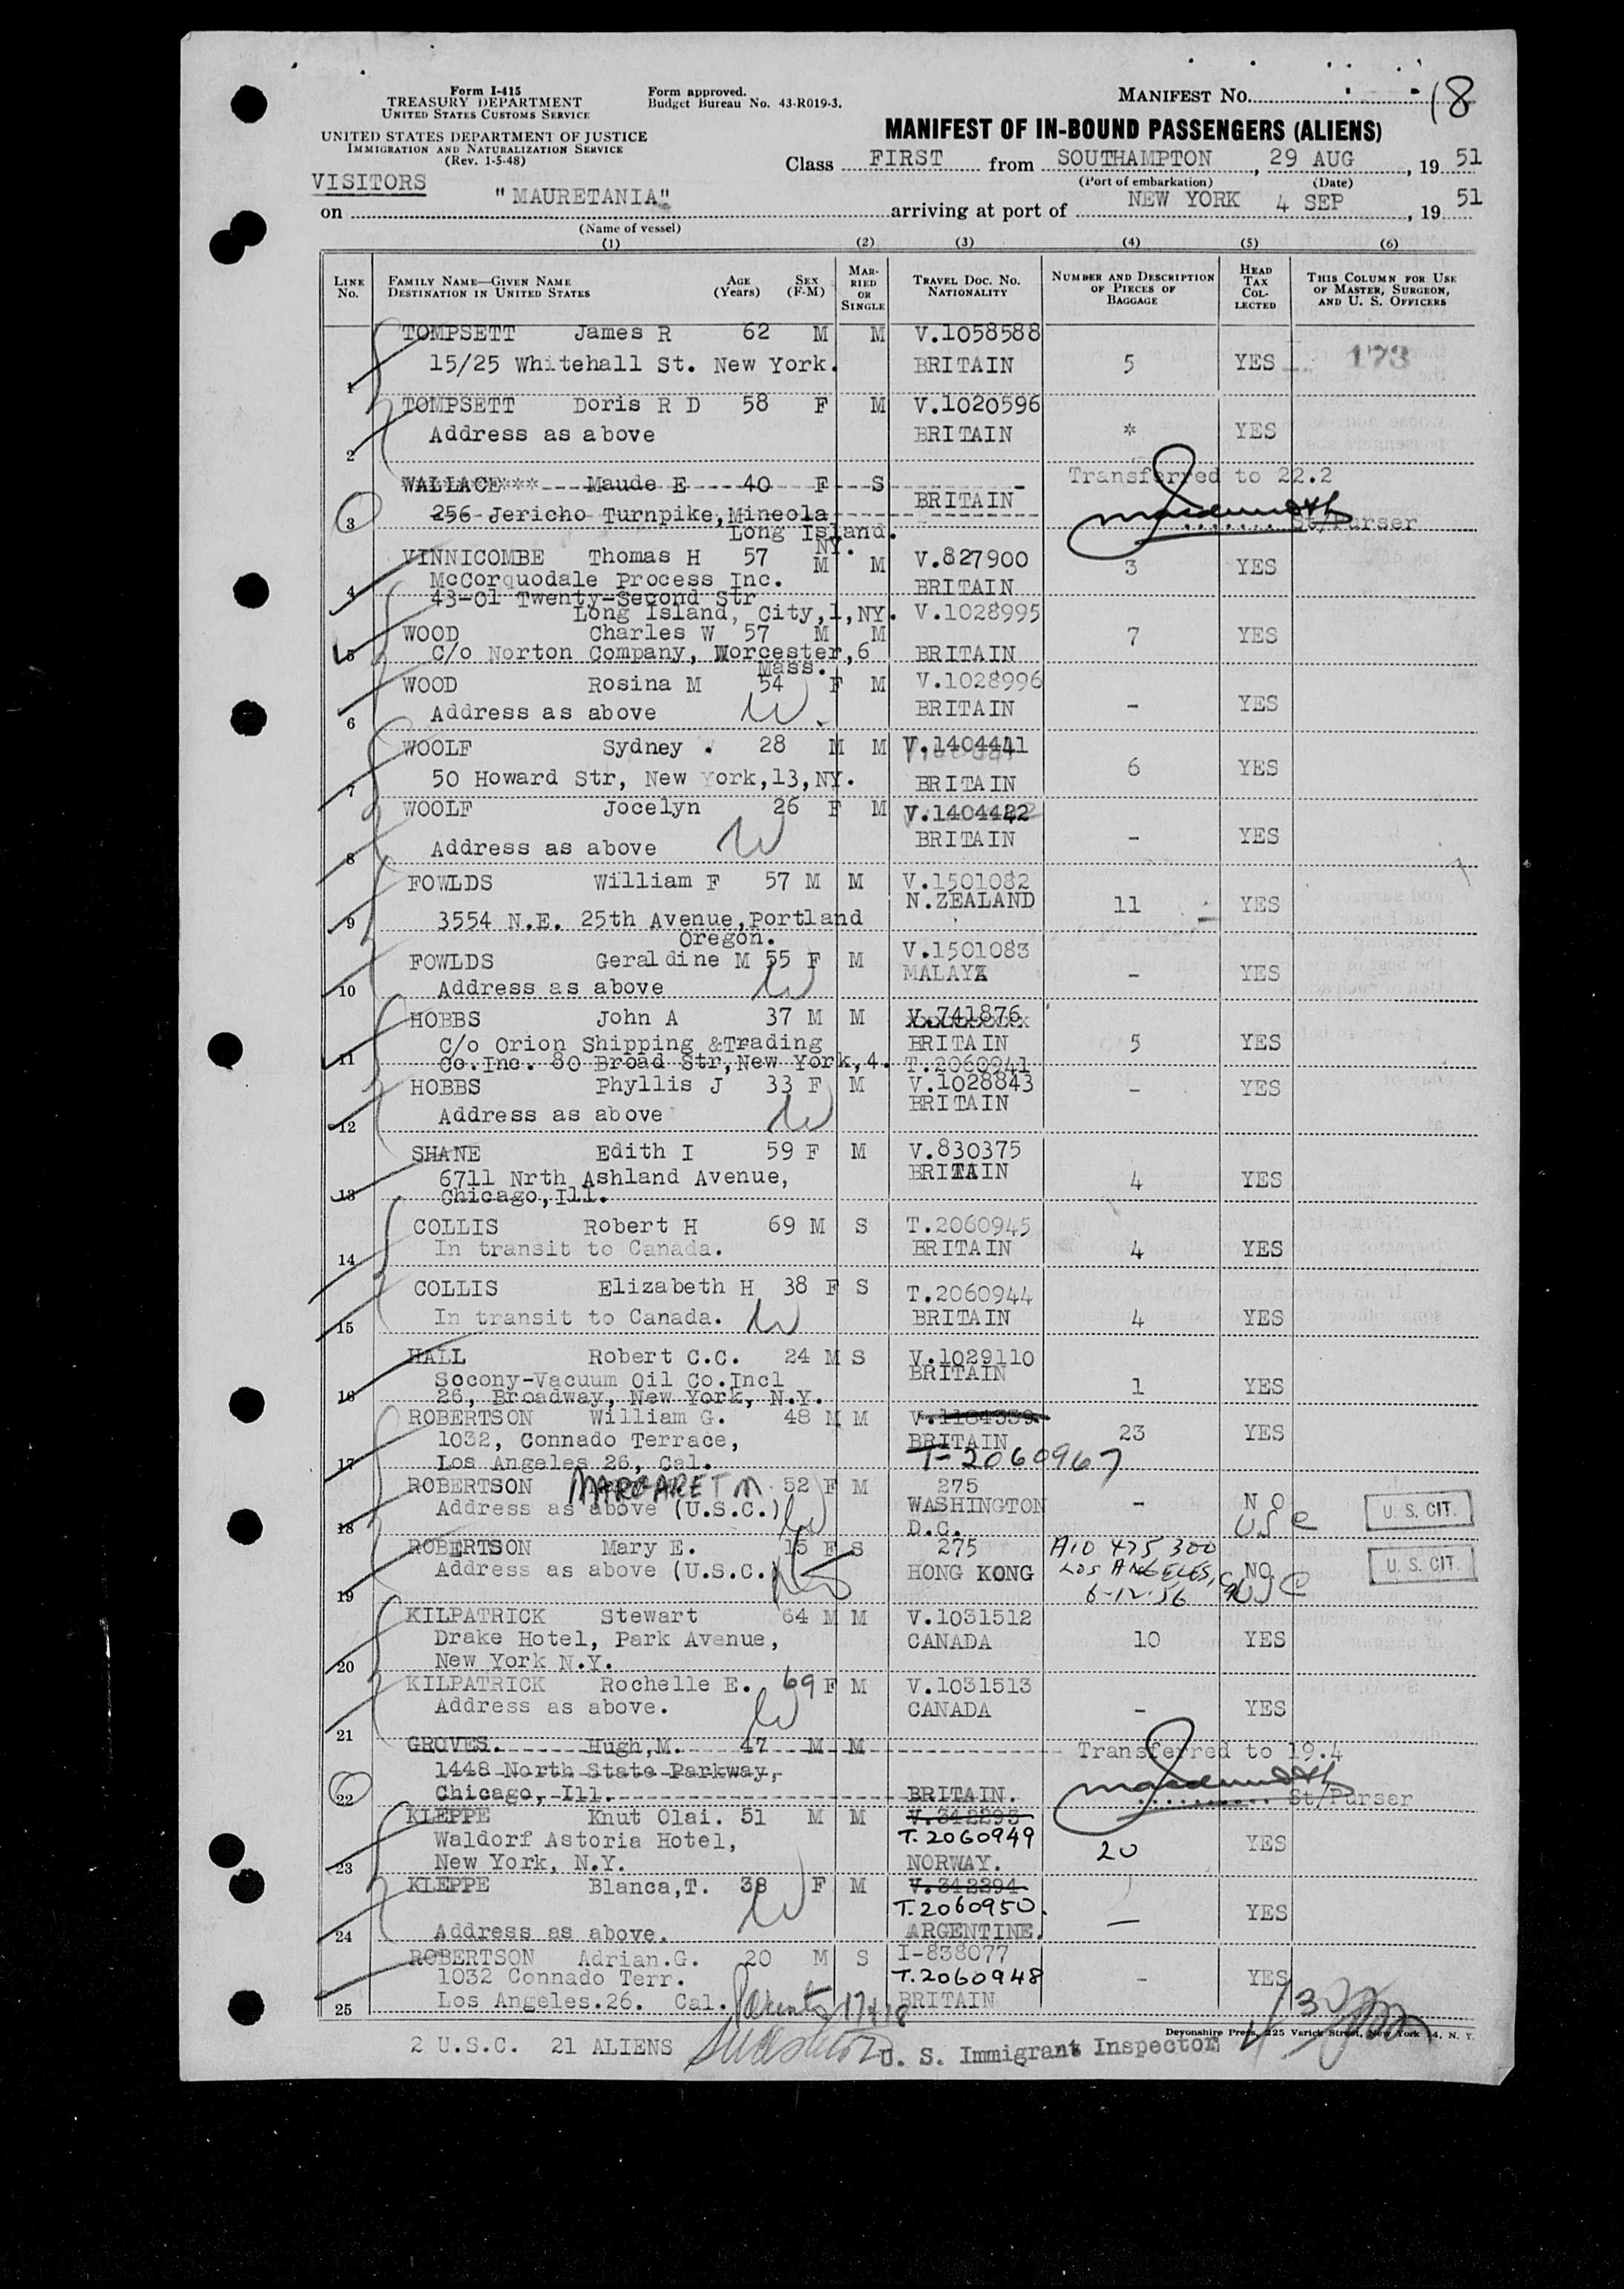 Form I-415
TREASURY DEPARTMENT
UNITED STATES CUSTOMS SERVICE
UNITED STATES DEPARTMENT OF JUSTICE
IMMIGRATION AND NATURALIZATION SERVICE
(Rev. 1-5-48)
Form approved.
Budget Bureau No. 43-R019-3.
MANIFEST NO. 18
MANIFEST OF IN-BOUND PASSENGERS (ALIENS)
Class FIRST from SOUTHAMPTON, 29 AUG, 19 51
(Port of embarkation) (Date)
VISITORS
on "MAURETANIA" arriving at port of NEW YORK 4 SEP, 19 51
(Name of vessel)
(1) (2) (3) (4) (5) (6)
LINE No. FAMILY NAME—GIVEN NAME DESTINATION IN UNITED STATES AGE (Years) SEX (F-M) MARRIED OR SINGLE TRAVEL DOC. NO. NATIONALITY NUMBER AND DESCRIPTION OF PIECES OF BAGGAGE HEAD TAX COLLECTED THIS COLUMN FOR USE OF MASTER, SURGEON, AND U. S. OFFICERS
TOMPSETT James R 62 M M V.1058588
1 15/25 Whitehall St. New York. BRITAIN 5 YES 173
TOMPSETT Doris R D 58 F M V.1020596
2 Address as above BRITAIN * YES
WALLACE*** Maude E 40 F S - Transferred to 22.2
3 256 Jericho Turnpike, Mineola BRITAIN St/Purser
Long Island.
NY.
VINNICOMBE Thomas H 57 M M V.827900
4 McCorquodale Process Inc. BRITAIN 3 YES
43-01 Twenty-Second Str
Long Island, City,1,NY. V.1028995
WOOD Charles W 57 M M 7 YES
5 C/o Norton Company, Worcester,6 BRITAIN
Mass.
WOOD Rosina M 54 F M V.1028996
6 Address as above BRITAIN - YES
WOOLF Sydney . 28 M M V.1404441
7 50 Howard Str, New York,13,NY. BRITAIN 6 YES
WOOLF Jocelyn 26 F M V.1404442
8 Address as above BRITAIN - YES
FOWLDS William F 57 M M V.1501082
N.ZEALAND 11 YES
9 3554 N.E. 25th Avenue,Portland
Oregon.
FOWLDS Geraldine M 55 F M V.1501083
MALAYA - YES
10 Address as above
HOBBS John A 37 M M V.741876
C/o Orion Shipping &Trading BRITAIN 5 YES
11 Co.Inc. 80 Broad Str,New York,4. T.2060941
HOBBS Phyllis J 33 F M V.1028843 - YES
12 Address as above BRITAIN
SHANE Edith I 59 F M V.830375
6711 Nrth Ashland Avenue, BRITAIN 4 YES
13 Chicago,Ill.
COLLIS Robert H 69 M S T.2060945
14 In transit to Canada. BRITAIN 4 YES
COLLIS Elizabeth H 38 F S T.2060944
15 In transit to Canada. BRITAIN 4 YES
HALL Robert C.C. 24 M S V.1029110
Socony-Vacuum Oil Co.Incl BRITAIN 1 YES
16 26, Broadway, New York, N.Y.
ROBERTSON William G. 48 M M V.1184359
1032, Connado Terrace, BRITAIN 23 YES
17 Los Angeles 26, Cal. T-2060967
ROBERTSON MARGARET M 52 F M 275
18 Address as above (U.S.C.) WASHINGTON D.C. - NO USC U. S. CIT.
ROBERTSON Mary E. 15 F S 275 A10 475 300
19 Address as above (U.S.C.) HONG KONG LOS ANGELES, CA NO USC U. S. CIT.
6-12-56
KILPATRICK Stewart 64 M M V.1031512
Drake Hotel, Park Avenue, CANADA 10 YES
20 New York N.Y.
KILPATRICK Rochelle E. 69 F M V.1031513
21 Address as above. CANADA - YES
GROVES. Hugh,M. 47 M M Transferred to 19.4
1448 North State Parkway,
22 Chicago, Ill. BRITAIN. St/Purser
KLEPPE Knut Olai. 51 M M V.342293
Waldorf Astoria Hotel, T.2060949 20 YES
23 New York, N.Y. NORWAY.
KLEPPE Blanca,T. 38 F M V.342294
T.2060950. — YES
24 Address as above. ARGENTINE.
ROBERTSON Adrian.G. 20 M S I-838077
1032 Connado Terr. T.2060948 - YES
25 Los Angeles.26. Cal. Parents 17+18 BRITAIN
Devonshire Press, 225 Varick Street, New York 14, N. Y.
2 U.S.C. 21 ALIENS U. S. Immigrant Inspector